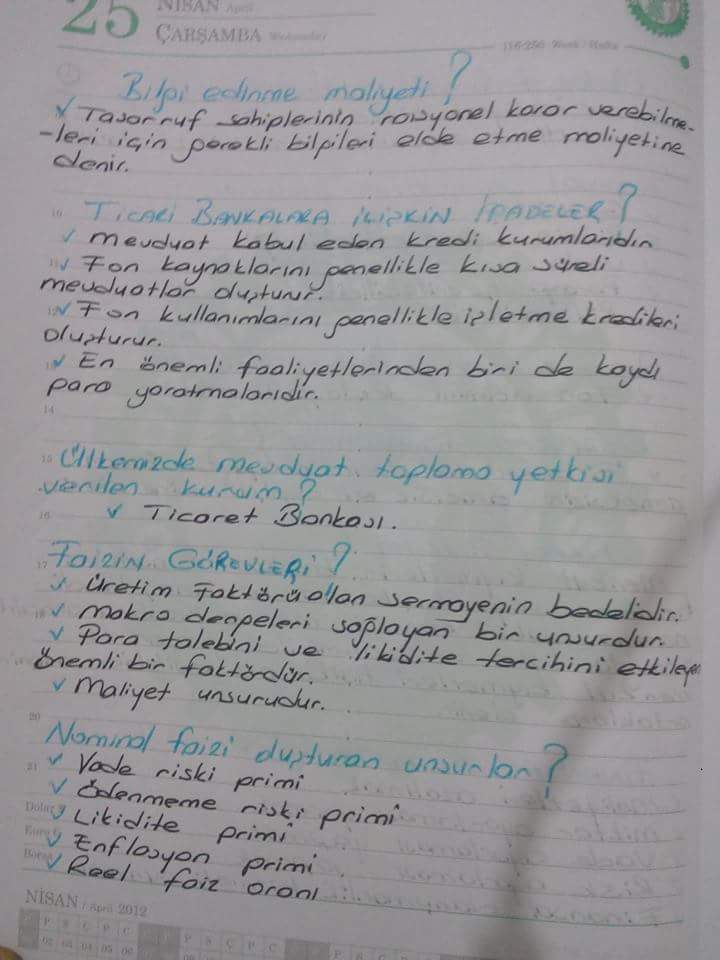 25
NİSAN April
ÇARŞAMBA Wednesday
116-250 Week / Hafta
Bilgi edinme maliyeti?
✓ Tasarruf sahiplerinin rasyonel karar verebilme-
-leri için gerekli bilgileri elde etme maliyetine
denir.
TİCARİ BANKALARA İLİŞKİN İFADELER?
✓ Mevduat kabul eden kredi kurumlarıdır
✓ Fon kaynaklarını genellikle kısa süreli
mevduatlar oluşturur.
✓ Fon kullanımlarını genellikle işletme kredileri
oluşturur.
✓ En önemli faaliyetlerinden biri de kaydi
para yaratmalarıdır.
14
15 Ülkemizde mevduat toplama yetkisi
verilen kurum?
16 ✓ Ticaret Bankası.
17 FAİZİN GÖREVLERİ?
✓ Üretim faktörü olan sermayenin bedelidir.
✓ Makro dengeleri sağlayan bir unsurdur.
✓ Para talebini ve likidite tercihini etkileyen
önemli bir faktördür.
✓ Maliyet unsurudur.
20
Nominal faizi oluşturan unsurlar?
21 ✓ Vade riski primi
✓ Ödenmeme riski primi
Dolar ✓ Likidite primi
Euro ✓ Enflasyon primi
Borsa ✓ Reel faiz oranı
NİSAN / April 2012
P S Ç P C
02 03 04 05 06
P S Ç P C